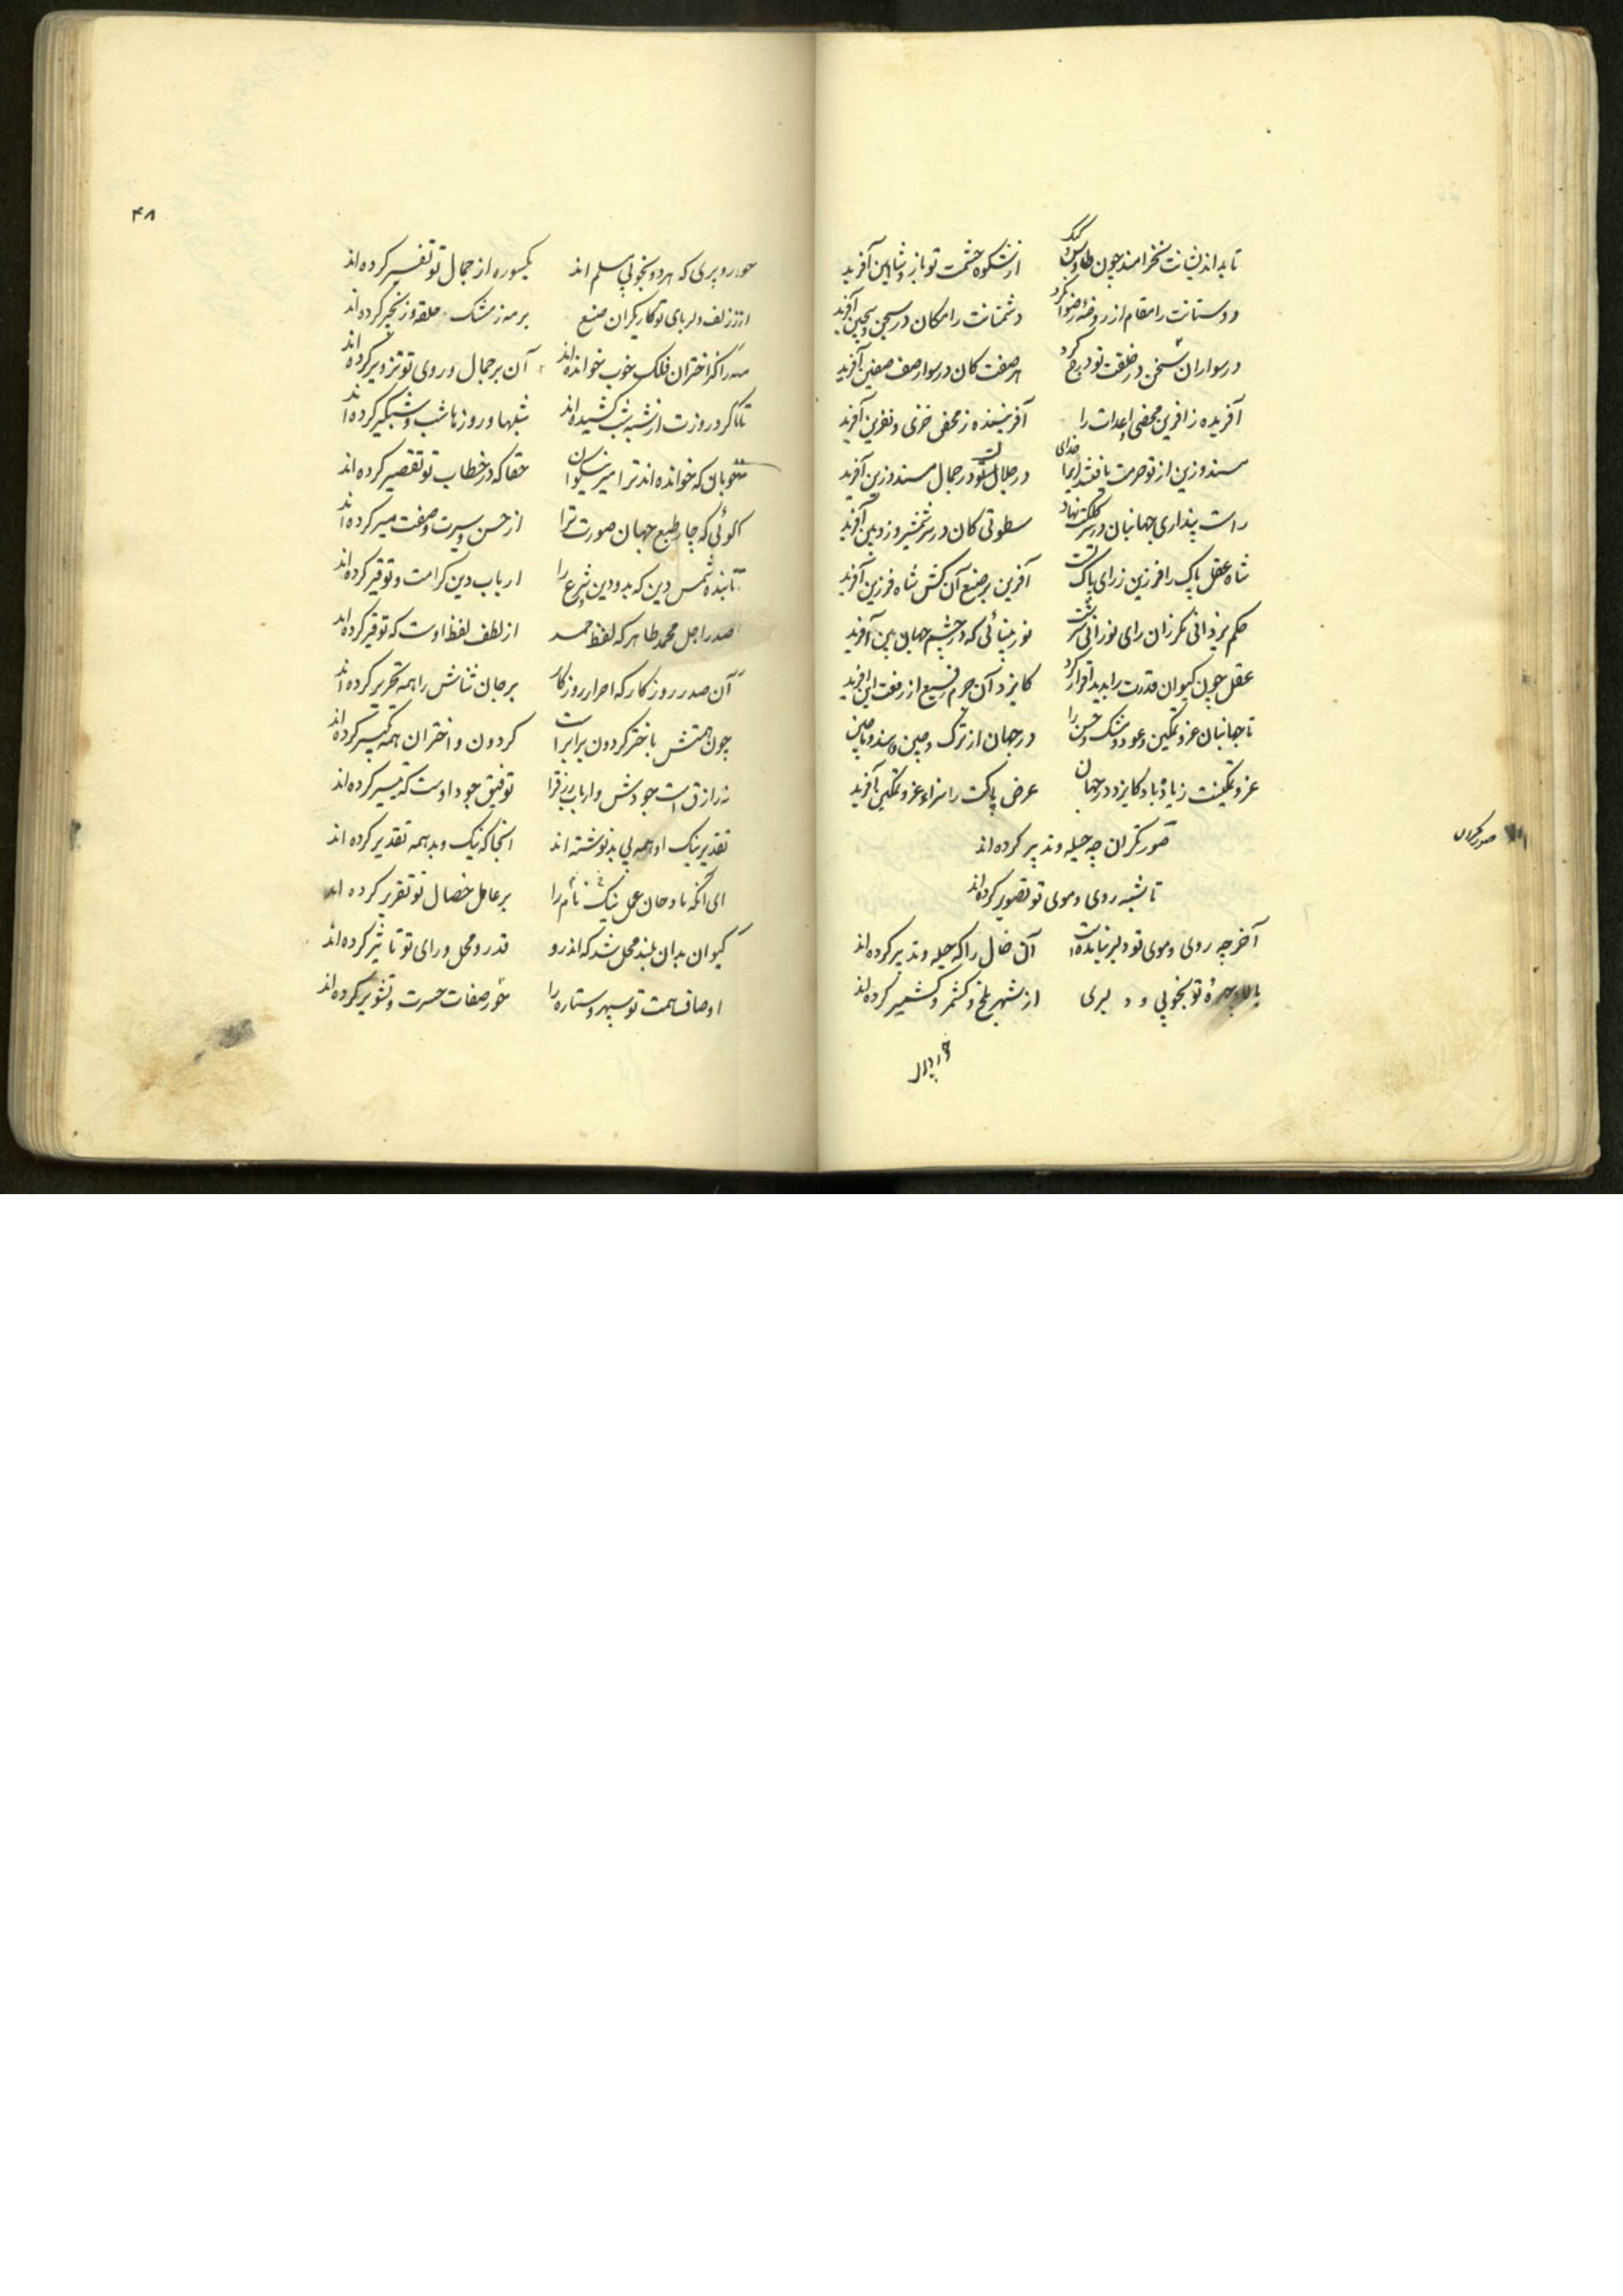 تا بد اندیشانت نخرامند چون طاوس و کبک از شکوه حشمت تو باز و شاهین آفرید
دوستانت را مقام از روضه رضوان کرد دشمنانت را مکان در سجن سجین آفرید
در سواران سخن در خلقت تو درج کرد هر صفت کان در سوار صف صفین آفرید
آفریده ز آفرین محضی و اعدات را آفریننده ز محض خزی و نفرین آفرید
مسند و زین از تو حرمت یافتند ایرا خدای در جلال تو در جمال مسند و زین آفرید
راست پنداری جهانبان در سر کلکت نهاد سطوتی کان در سر شمشیر و زوبین آفرید
شاه عقل پاک را فرزین ز رای پاک تست آفرین بر صنع آن کش شاه فرزین آفرید
حکم یزدانی نگر زان رای نورانی سرشت نور بینائی که در چشم جهان بین آفرید
عقل چون کیوان قدرت را بدید اقرار کرد کایزد آن جرم رفیع از رفعت این آفرید
تا جهانبان عز و تمکین و عود و مشک و حسن را در جهان از ترک و چین و سند و ماچین
عز و تمکینت زیاده باد کایزد در جهان عرض پاکت را سزاء عز و تمکین آفرید
صورتگران چه حیله و تدبیر کرده‌اند
صورتگران
تا شبه روی و موی تو تصویر کرده‌اند
آخر چه روی و موی تو دلبر نیامده است آن خال را که حیله و تدبیر کرده‌اند
بالا و چهره تو بخوبی و دلبری از شهر بلخ و کشمر و کشمیر کرده‌اند
حور و پری
۴۸
حور و پری که هر دو بخوبی مسلم اند یکسوره از جمال تو تفسیر کرده‌اند
از زلف دلربای تو کاریگران صنع بر مه ز مشک حلقه و زنجیر کرده‌اند
مه را کز اختران فلک خوب خوانده‌اند آن بر جمال و روی تو تزویر کرده‌اند
تا گرد روزت از شبه شب کشیده‌اند شبها و روزها شب و شبگیر کرده‌اند
خوبان که خوانده‌اند ترا میر نیکوان حقا که در خطاب تو تقصیر کرده‌اند
گوئی که چار طبع جهان صورت ترا از حسن و سیرت و صفت میر کرده‌اند
تابنده شمس دین که بدو دین و شرع را ارباب دین کرامت و توقیر کرده‌اند
صدر اجل محمد طاهر که لفظ حمد از لطف لفظ اوست که توقیر کرده‌اند
آن صدر روزگار که احرار روزگار بر جان ثناش را همه تحریر کرده‌اند
چون همتش باختر گردون برابر است گردون و اختران همه تکبیر کرده‌اند
نه رازق است جودش و ارباب رزق را توفیق جود اوست که تیسیر کرده‌اند
تقدیر نیک او همه بی بد نوشته‌اند آنجا که نیک و بد همه تقدیر کرده‌اند
ای آنکه مادحان عمل نیک نام را بر عامل خصال تو تقریر کرده‌اند
کیوان بدان بلند محل شد که اندرو قدر و محل و رای تو تاثیر کرده‌اند
اوصاف همت تو سپهر و ستاره را خور صفات حسرت و تشویر کرده‌اند